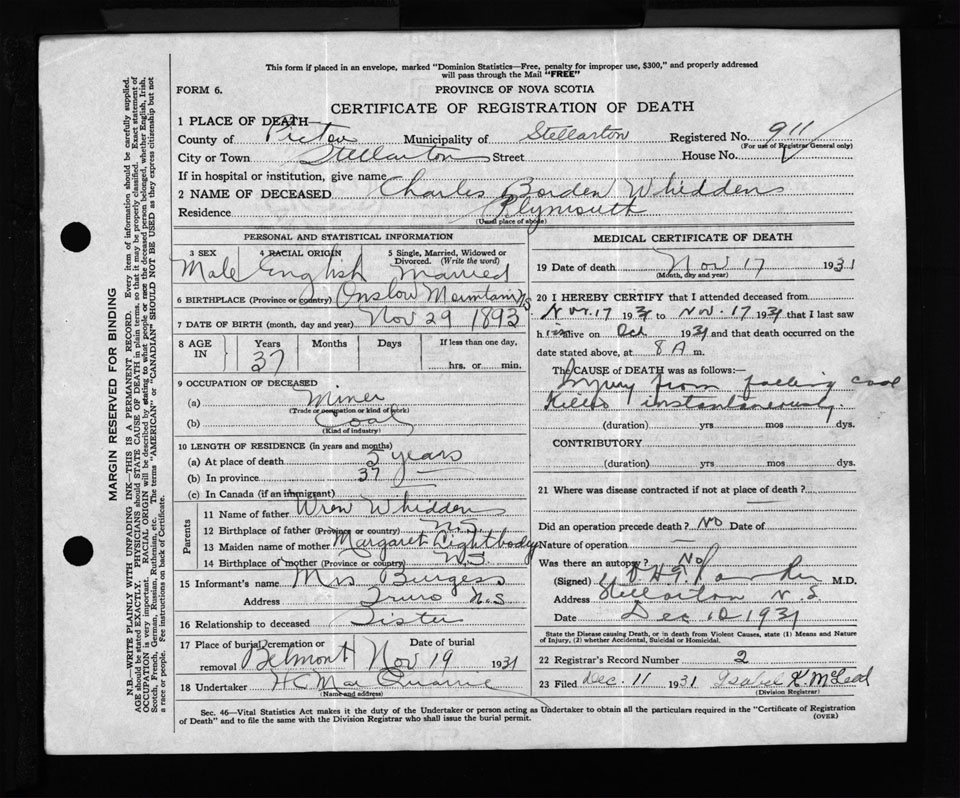 This form if placed in an envelope, marked "Dominion Statistics—Free, penalty for improper use, $300," and properly addressed
will pass through the Mail "FREE"
FORM 6.
PROVINCE OF NOVA SCOTIA
CERTIFICATE OF REGISTRATION OF DEATH
1 PLACE OF DEATH
County of Pictou Municipality of Stellarton Registered No. 911
(For use of Registrar General only)
City or Town Stellarton Street House No.
If in hospital or institution, give name
2 NAME OF DECEASED Charles Borden Whidden
Residence Plymouth
(Usual place of abode)
PERSONAL AND STATISTICAL INFORMATION
3 SEX 4 RACIAL ORIGIN 5 Single, Married, Widowed or
Divorced. (Write the word)
Male English Married
6 BIRTHPLACE (Province or country) Onslow Mountain N S
7 DATE OF BIRTH (month, day and year) Nov 29 1893
8 AGE IN Years Months Days If less than one day,
37 hrs. or min.
9 OCCUPATION OF DECEASED
(a) Miner
(Trade or occupation or kind of work)
(b) Coal
(Kind of industry)
10 LENGTH OF RESIDENCE (in years and months)
(a) At place of death 5 years
(b) In province 37
(c) In Canada (if an immigrant)
Parents
11 Name of father Wren Whidden
12 Birthplace of father (Province or country) N.S.
13 Maiden name of mother Margaret Lightbody
14 Birthplace of mother (Province or country) N.S
15 Informant's name Mrs Burgess
Address Truro N.S
16 Relationship to deceased Sister
17 Place of burial, cremation or Date of burial
removal Belmont Nov 19 1931
18 Undertaker H C Mac Quarrie
(Name and address)
MEDICAL CERTIFICATE OF DEATH
19 Date of death Nov 17 1931
(Month, day and year)
20 I HEREBY CERTIFY that I attended deceased from
Nov. 17 1931 to Nov. 17 1931 that I last saw
him alive on Oct 1931 and that death occurred on the
date stated above, at 8 A m.
The CAUSE of DEATH was as follows:—
Injury from falling coal
Killed instantaneously
(duration) yrs mos dys.
CONTRIBUTORY
(duration) yrs mos dys.
21 Where was disease contracted if not at place of death?
Did an operation precede death? NO Date of
Nature of operation
Was there an autopsy? No
(Signed) M.D.
Address Stellarton N. S
Date Dec 10 1931
State the Disease causing Death, or in death from Violent Causes, state (1) Means and Nature
of Injury, (2) whether Accidental, Suicidal or Homicidal.
22 Registrar's Record Number 2
23 Filed Dec. 11 1931 Isabel K. McLeod
(Division Registrar)
Sec. 46—Vital Statistics Act makes it the duty of the Undertaker or person acting as Undertaker to obtain all the particulars required in the "Certificate of Registration
of Death" and to file the same with the Division Registrar who shall issue the burial permit.
(OVER)
MARGIN RESERVED FOR BINDING
N.B.—WRITE PLAINLY WITH UNFADING INK—THIS IS A PERMANENT RECORD. Every item of information should be carefully supplied.
AGE should be stated EXACTLY. PHYSICIANS should STATE CAUSE OF DEATH in plain terms, so that it may be properly classified. Exact statement of
OCCUPATION is very important. RACIAL ORIGIN will be described by stating to what people or race the deceased person belonged, whether English, Irish,
Scotch, French, German, Russian, Ruthenian, etc. The terms "AMERICAN" or "CANADIAN" SHOULD NOT BE USED as they express citizenship but not
a race or people. See instructions on back of Certificate.